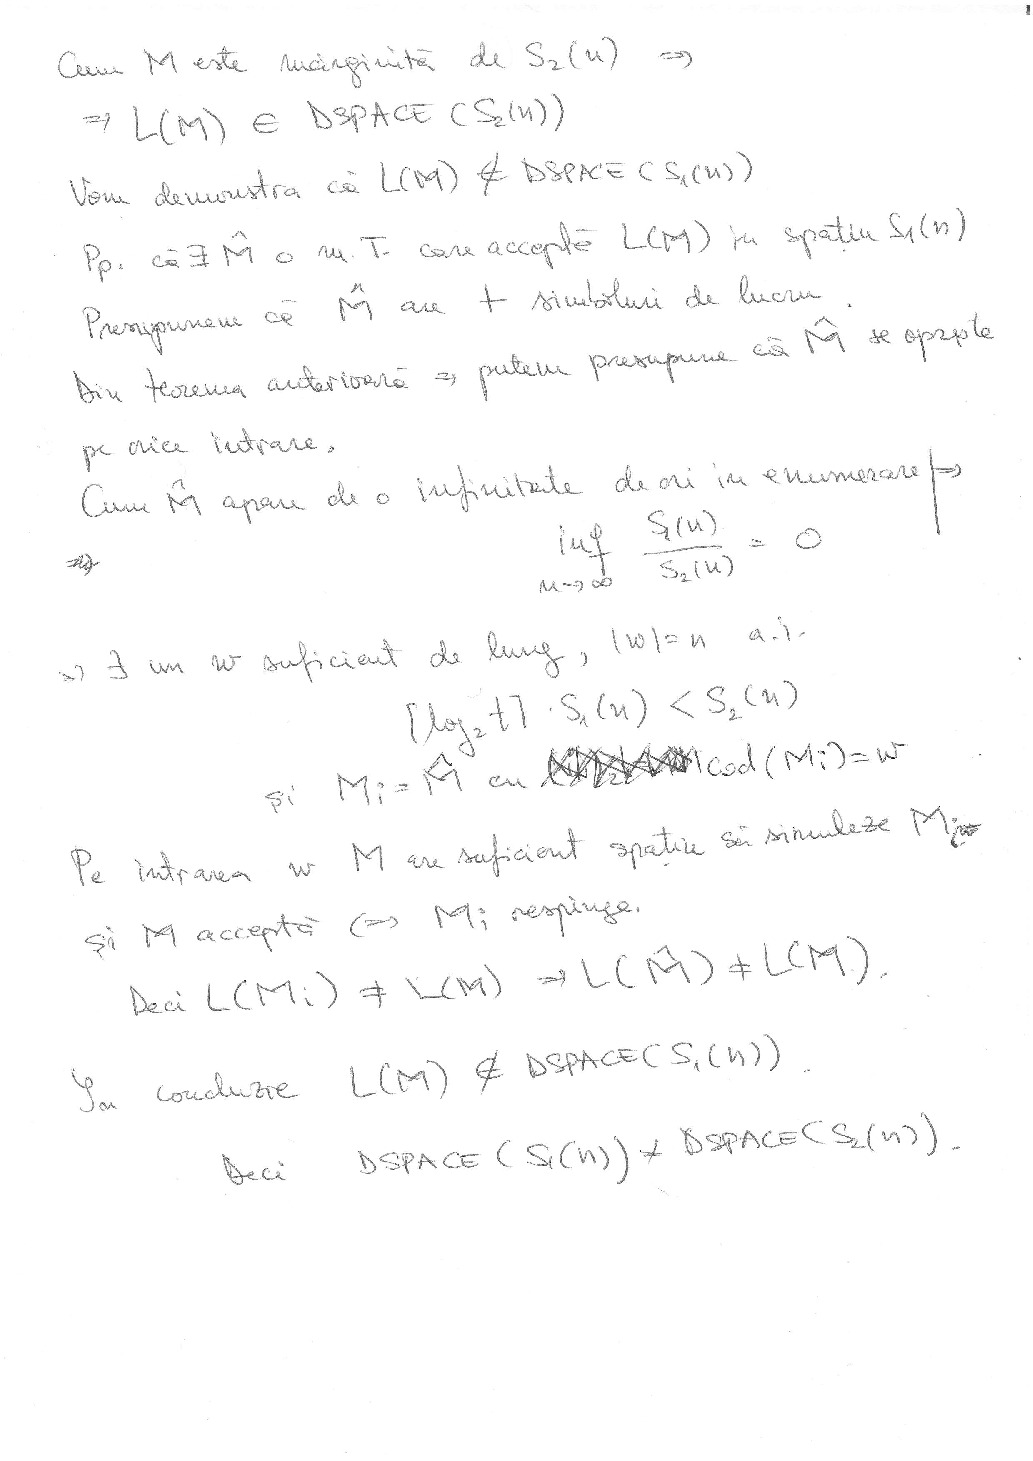 Cum M este mărginită de S₂(n) ⇒
⇒ L(M) ∈ DSPACE (S₂(n))
Vom demonstra că L(M) ∉ DSPACE (S₁(n))
Pp. că ∃ M̂ o m. T. care acceptă L(M) in spațiu S₁(n)
Presupunem că M̂ are t simboluri de lucru.
Din teorema anterioară ⇒ putem presupune că M̂ se oprește
pe orice intrare.
Cum M̂ apare de o infinitate de ori in enumerare | ⇒
inf S₁(n)/S₂(n) = 0
n→∞
⇒ ∃ un w suficient de lung, |w|=n a.î.
⌈log₂ t⌉ · S₁(n) < S₂(n)
și Mi = M̂ cu cod(Mi)=w
Pe intrarea w M are suficient spațiu să simuleze Mi
și M acceptă ⇔ Mi respinge.
Deci L(Mi) ≠ L(M) ⇒ L(M̂) ≠ L(M).
In concluzie L(M) ∉ DSPACE(S₁(n)).
Deci DSPACE (S₁(n)) ≠ DSPACE(S₂(n)).